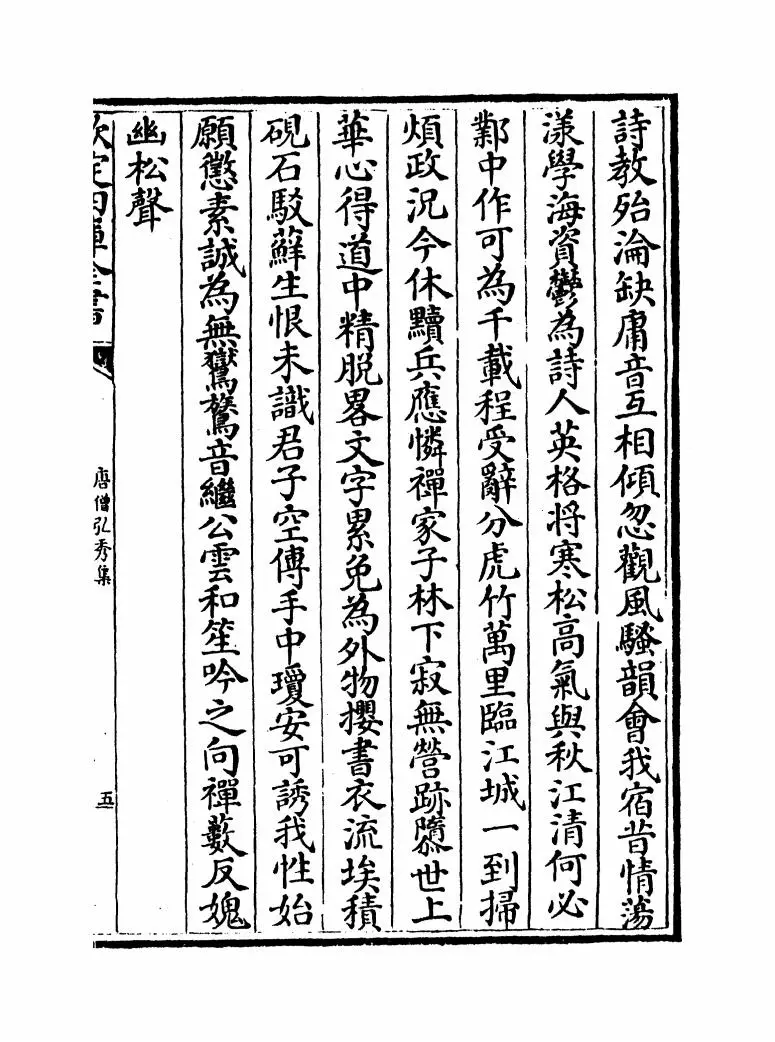 詩教殆淪缺庸音互相傾忽觀風騷韻會我宿昔情蕩
漾學海資鬱為詩人英格將寒松高氣與秋江清何必
鄴中作可為千載程受辭分虎竹萬里臨江城一到掃
煩政況今休黷兵應憐禪家子林下寂無營跡隳世上
華心得道中精脫畧文字累免為外物攖書衣流埃積
硯石駁蘚生恨未識君子空傳手中瓊安可誘我性始
願懲素誠為無鸑鷟音繼公雲和笙吟之向禪藪反媿
幽松聲
欽定四庫全書
唐僧弘秀集
五